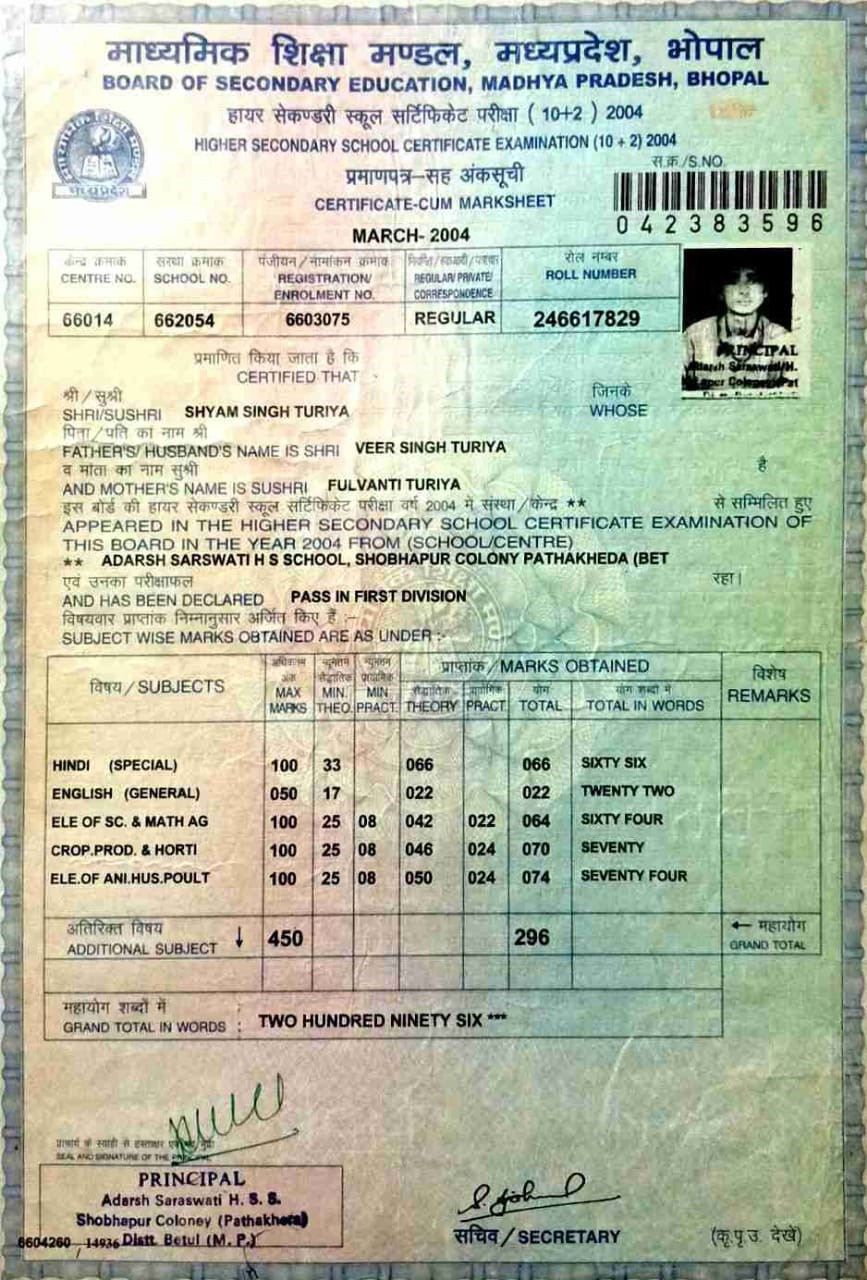 माध्यमिक शिक्षा मण्डल, मध्यप्रदेश, भोपाल
BOARD OF SECONDARY EDUCATION, MADHYA PRADESH, BHOPAL
हायर सेकण्डरी स्कूल सर्टिफिकेट परीक्षा ( 10+2 ) 2004
HIGHER SECONDARY SCHOOL CERTIFICATE EXAMINATION (10 + 2) 2004
मध्यप्रदेश
प्रमाणपत्र–सह अंकसूची
स.क्र./S.NO.
CERTIFICATE-CUM MARKSHEET
042383596
MARCH- 2004
केन्द्र क्रमांक संस्था क्रमांक पंजीयन / नामांकन क्रमांक रोल नम्बर
CENTRE NO. SCHOOL NO. REGISTRATION/ ENROLMENT NO. REGULAR/ PRIVATE/ CORRESPONDENCE ROLL NUMBER
66014 662054 6603075 REGULAR 246617829
PRINCIPAL
प्रमाणित किया जाता है कि
CERTIFIED THAT
श्री / सुश्री जिनके
SHRI/SUSHRI SHYAM SINGH TURIYA WHOSE
पिता/पति का नाम श्री
FATHER'S/ HUSBAND'S NAME IS SHRI VEER SINGH TURIYA
व माता का नाम सुश्री है
AND MOTHER'S NAME IS SUSHRI FULVANTI TURIYA
इस बोर्ड की हायर सेकण्डरी स्कूल सर्टिफिकेट परीक्षा वर्ष 2004 में संस्था/केन्द्र ** से सम्मिलित हुए
APPEARED IN THE HIGHER SECONDARY SCHOOL CERTIFICATE EXAMINATION OF
THIS BOARD IN THE YEAR 2004 FROM (SCHOOL/CENTRE)
** ADARSH SARSWATI H S SCHOOL, SHOBHAPUR COLONY PATHAKHEDA (BET
एवं उनका परीक्षाफल रहा।
AND HAS BEEN DECLARED PASS IN FIRST DIVISION
विषयवार प्राप्तांक निम्नानुसार अर्जित किए हैं :–
SUBJECT WISE MARKS OBTAINED ARE AS UNDER :-
विषय/SUBJECTS अधिकतम अंक MAX MARKS न्यूनतम सैद्धांतिक MIN. THEO. न्यूनतम प्रायोगिक MIN PRACT. प्राप्तांक/MARKS OBTAINED विशेष REMARKS
सैद्धांतिक THEORY प्रायोगिक PRACT. योग TOTAL योग शब्दों में TOTAL IN WORDS
HINDI (SPECIAL) 100 33 066 066 SIXTY SIX
ENGLISH (GENERAL) 050 17 022 022 TWENTY TWO
ELE OF SC. & MATH AG 100 25 08 042 022 064 SIXTY FOUR
CROP.PROD. & HORTI 100 25 08 046 024 070 SEVENTY
ELE.OF ANI.HUS.POULT 100 25 08 050 024 074 SEVENTY FOUR
अतिरिक्त विषय ↓ 450 296 ← महायोग
ADDITIONAL SUBJECT GRAND TOTAL
महायोग शब्दों में :
GRAND TOTAL IN WORDS : TWO HUNDRED NINETY SIX ***
SEAL AND SIGNATURE OF THE
PRINCIPAL
Adarsh Saraswati H. S. S.
Shobhapur Coloney (Pathakhera)
6604260 / 14936 Distt. Betul (M. P.)
सचिव/SECRETARY (कृ.पृ.उ. देखें)